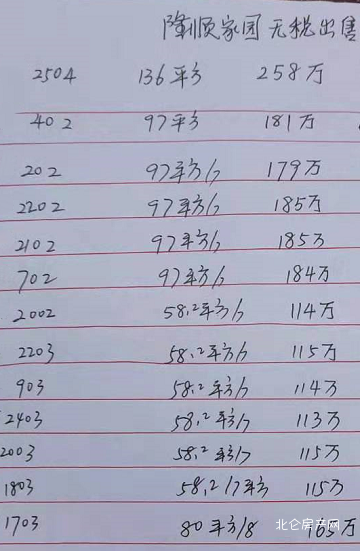 隆顺家园 无税出售
2504 136平方 258万
402 97平方 181万
202 97平方/7 179万
2202 97平方/7 185万
2102 97平方/7 185万
702 97平方/7 184万
2002 58.2平方/7 114万
2203 58.2平方/6 115万
903 58.2平方/6 114万
2403 58.2平方/7 113万
2003 58.2平方/7 115万
1803 58.2/7平方 115万
1703 80平方/8 165万
北仑房产网